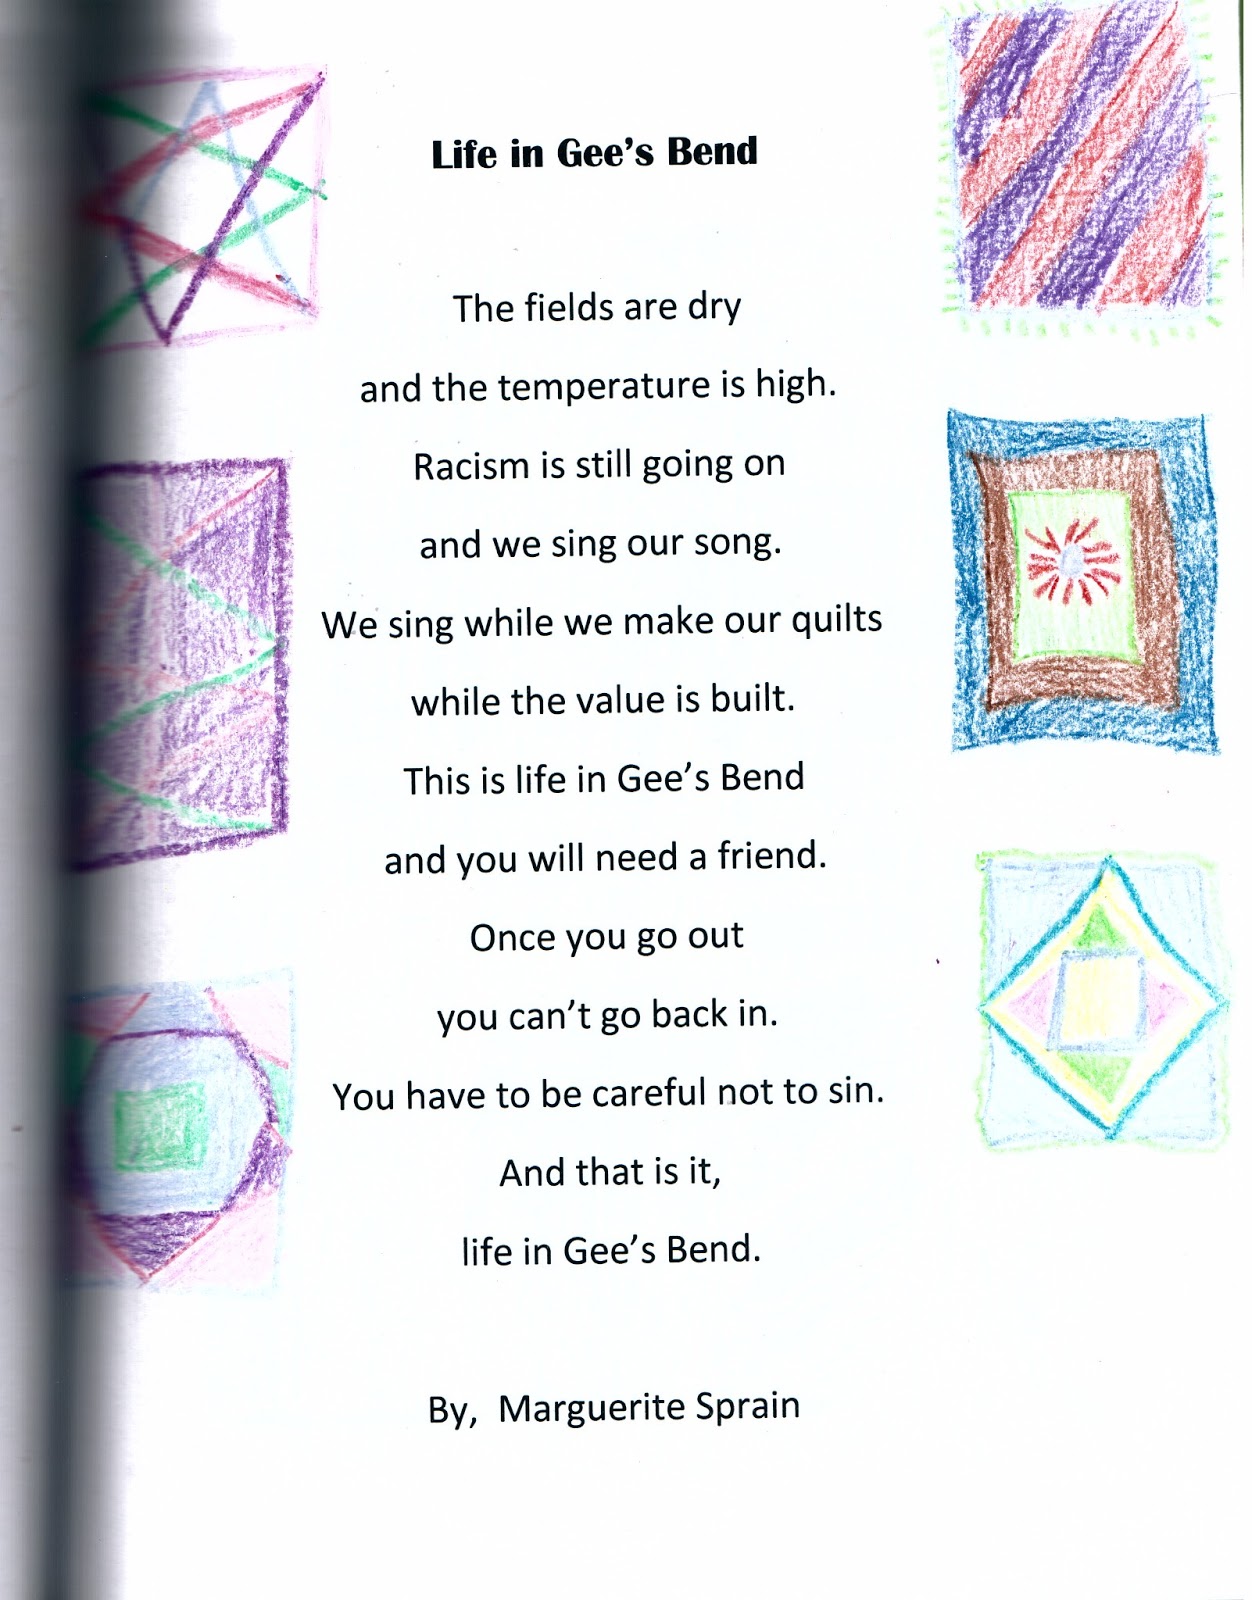 Life in Gee's Bend
The fields are dry
and the temperature is high.
Racism is still going on
and we sing our song.
We sing while we make our quilts
while the value is built.
This is life in Gee's Bend
and you will need a friend.
Once you go out
you can't go back in.
You have to be careful not to sin.
And that is it,
life in Gee's Bend.
By,  Marguerite Sprain